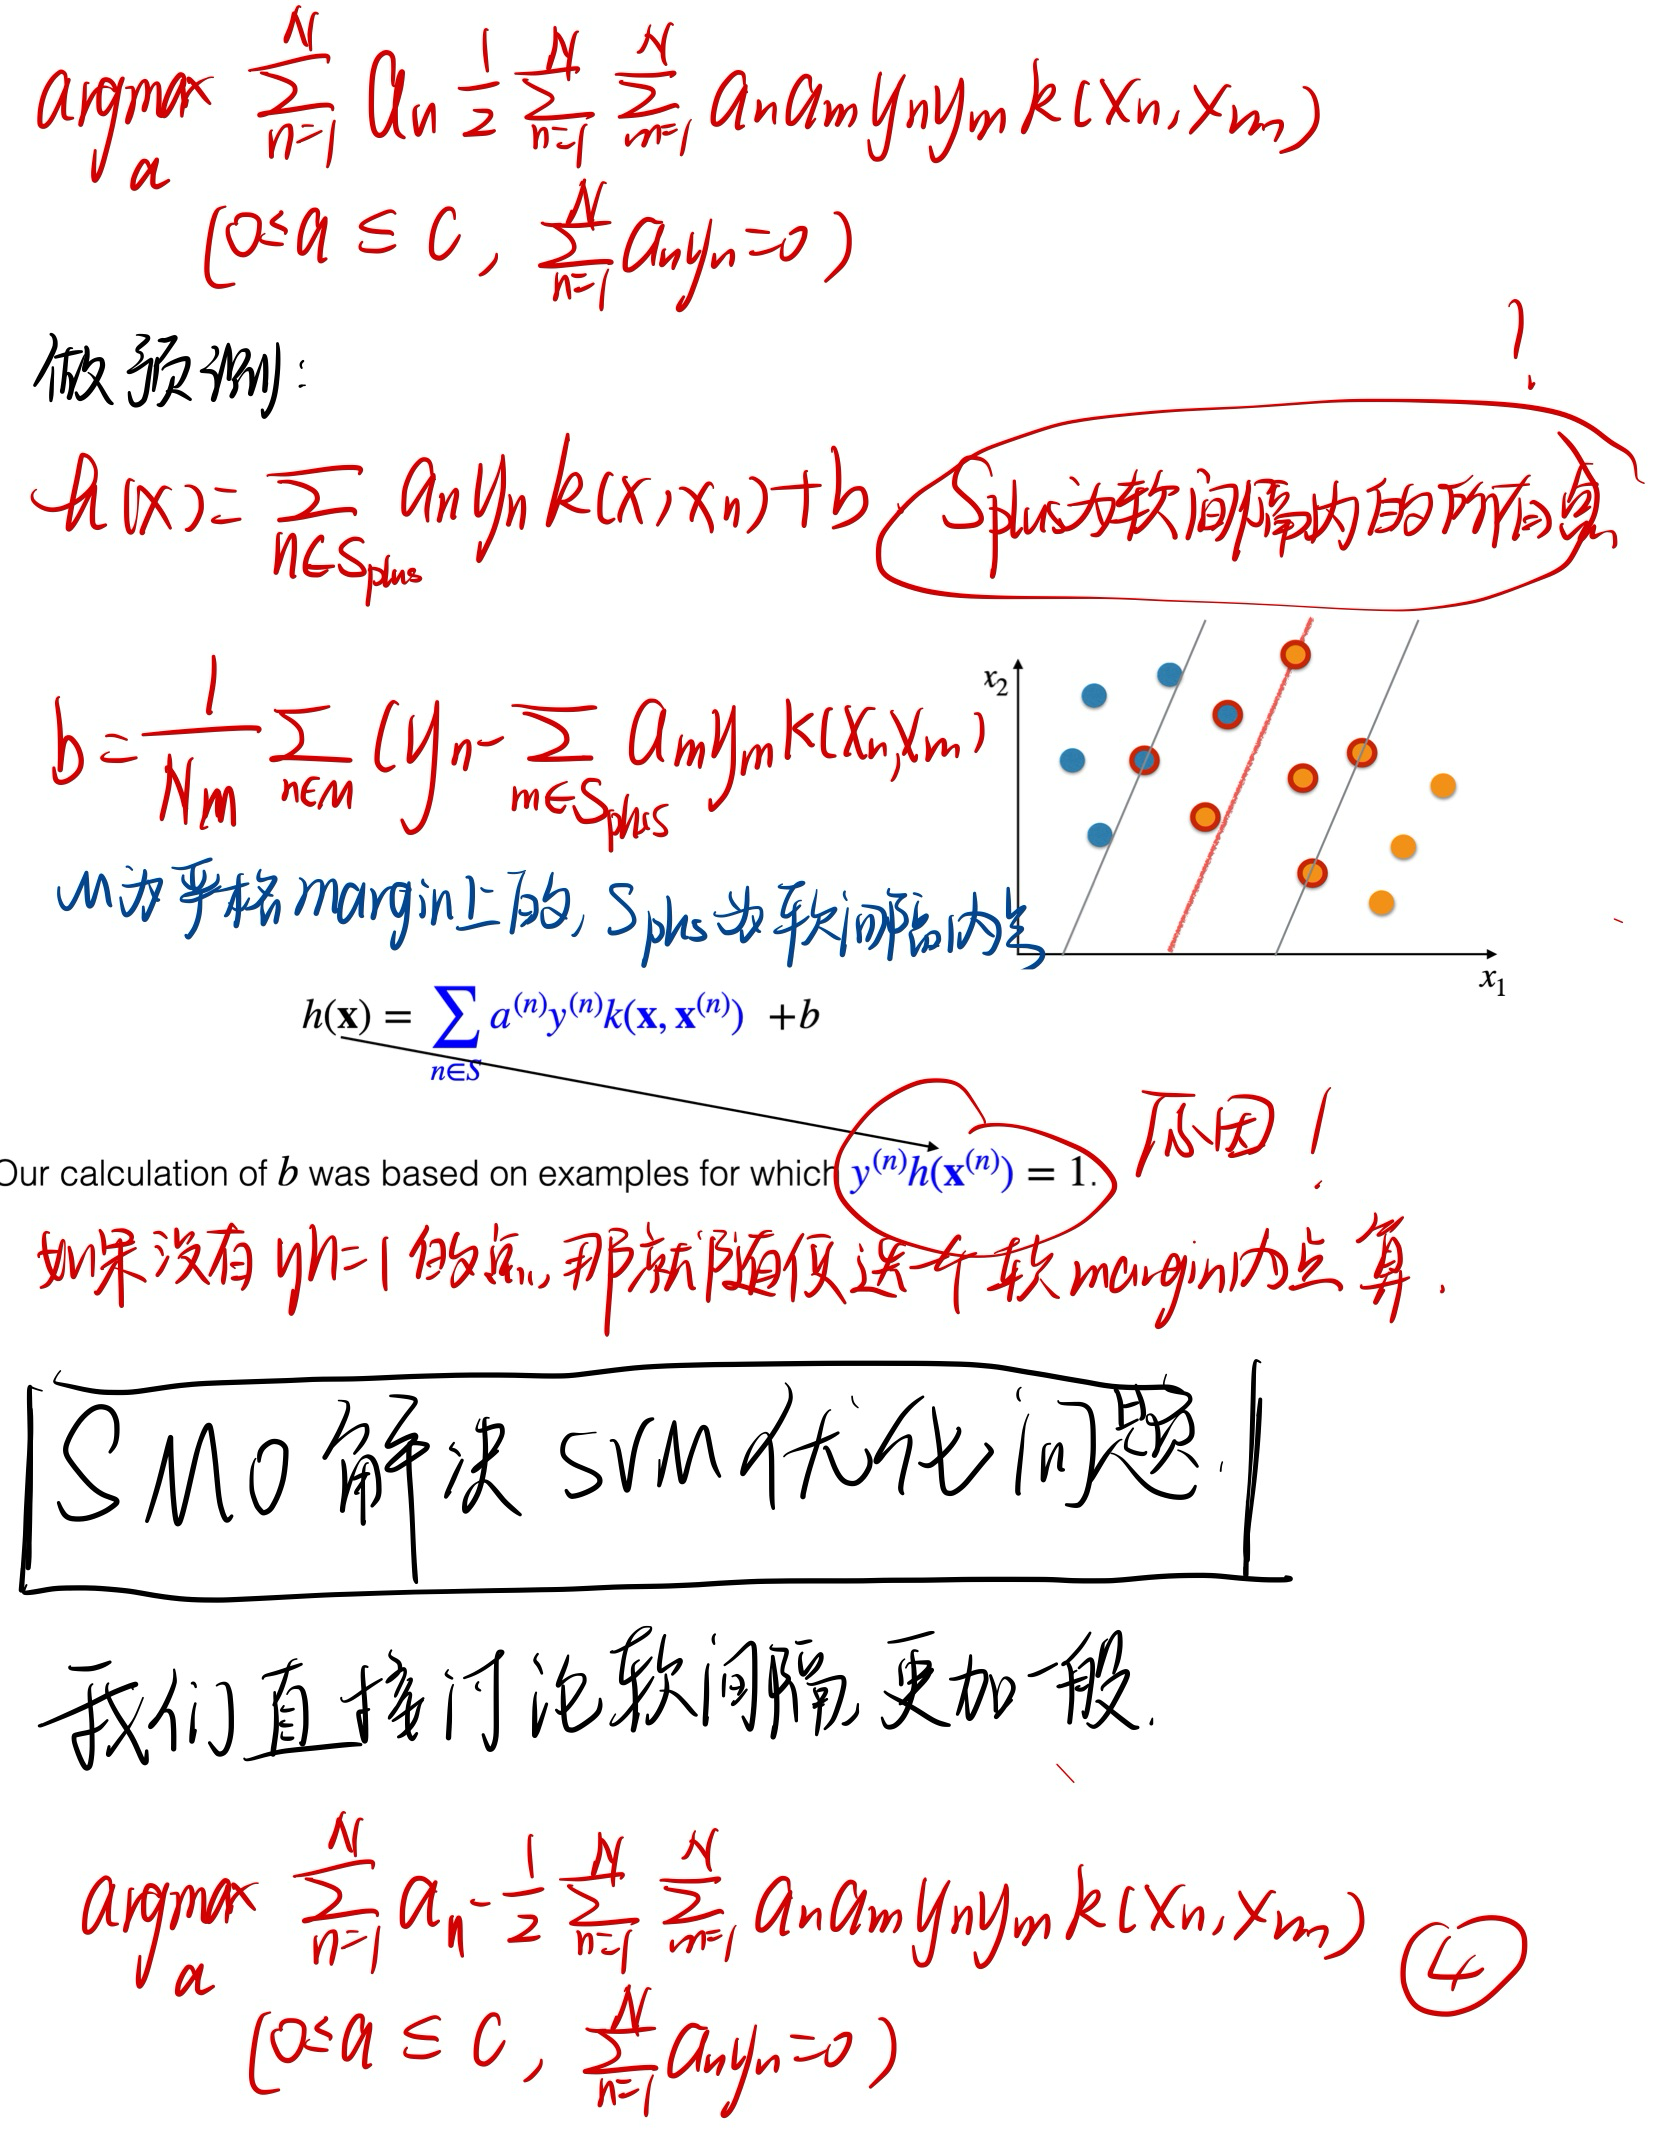 argmax_a ∑_{n=1}^{N} a_n 1/2 ∑_{n=1}^{N} ∑_{m=1}^{N} a_n a_m y_n y_m k(x_n, x_m)
(0≤a≤C, ∑_{n=1}^{N} a_n y_n = 0)
做预测:
h(x) = ∑_{n∈S_plus} a_n y_n k(x, x_n) + b. S_plus为软间隔内的所有点 !
b = 1/N_m ∑_{n∈M} (y_n - ∑_{m∈S_plus} a_m y_m k(x_n, x_m)
x_2
M为严格margin上的, S_plus为软间隔内点
x_1
h(x) = ∑_{n∈S} a^{(n)} y^{(n)} k(x, x^{(n)}) + b
Our calculation of b was based on examples for which y^{(n)} h(x^{(n)}) = 1. 原因!
如果没有 yh=1 的点, 那就随便选一个软margin内点算.
SMO解决SVM优化问题.
我们直接讨论软间隔,更加一般.
argmax_a ∑_{n=1}^{N} a_n - 1/2 ∑_{n=1}^{N} ∑_{m=1}^{N} a_n a_m y_n y_m k(x_n, x_m) ④
(0≤a≤C, ∑_{n=1}^{N} a_n y_n = 0)